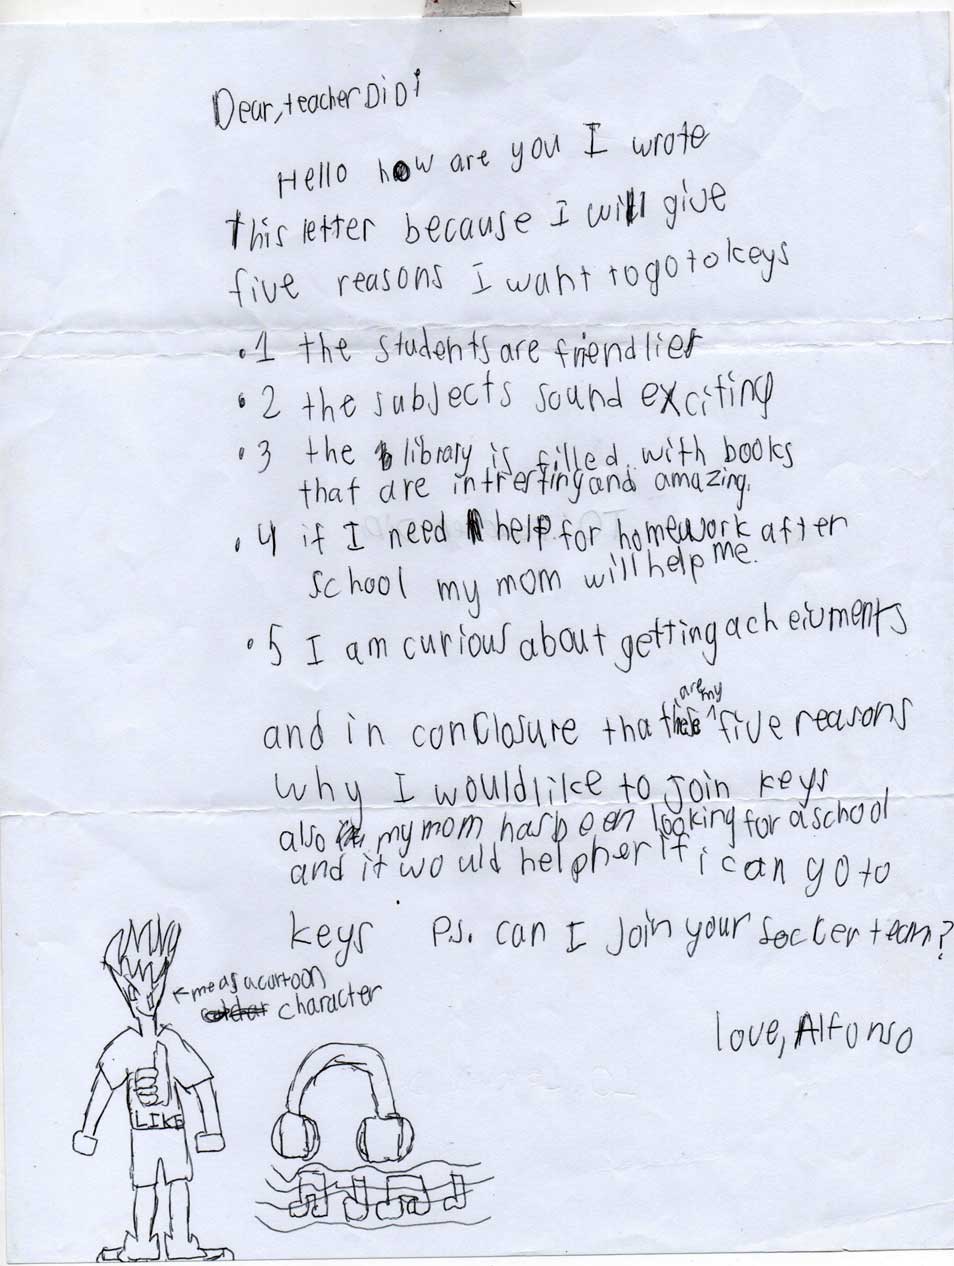 Dear, teacher DiDi
Hello how are you I wrote
this letter because I will give
five reasons I want to go to keys
.1 the students are friendlier
.2 the subjects sound exciting
.3 the library is filled with books
that are intrerting and amazing.
.4 if I need help for homework after
school my mom will help me.
.5 I am curious about getting acheivments
are my
and in conclosure that these ^ five reasons
why I would like to join keys
also my mom has been looking for a school
and it would help her if i can go to
keys P.S. can I join your soccer team?
←me as a cartoon
character
love, Alfonso
LIKE